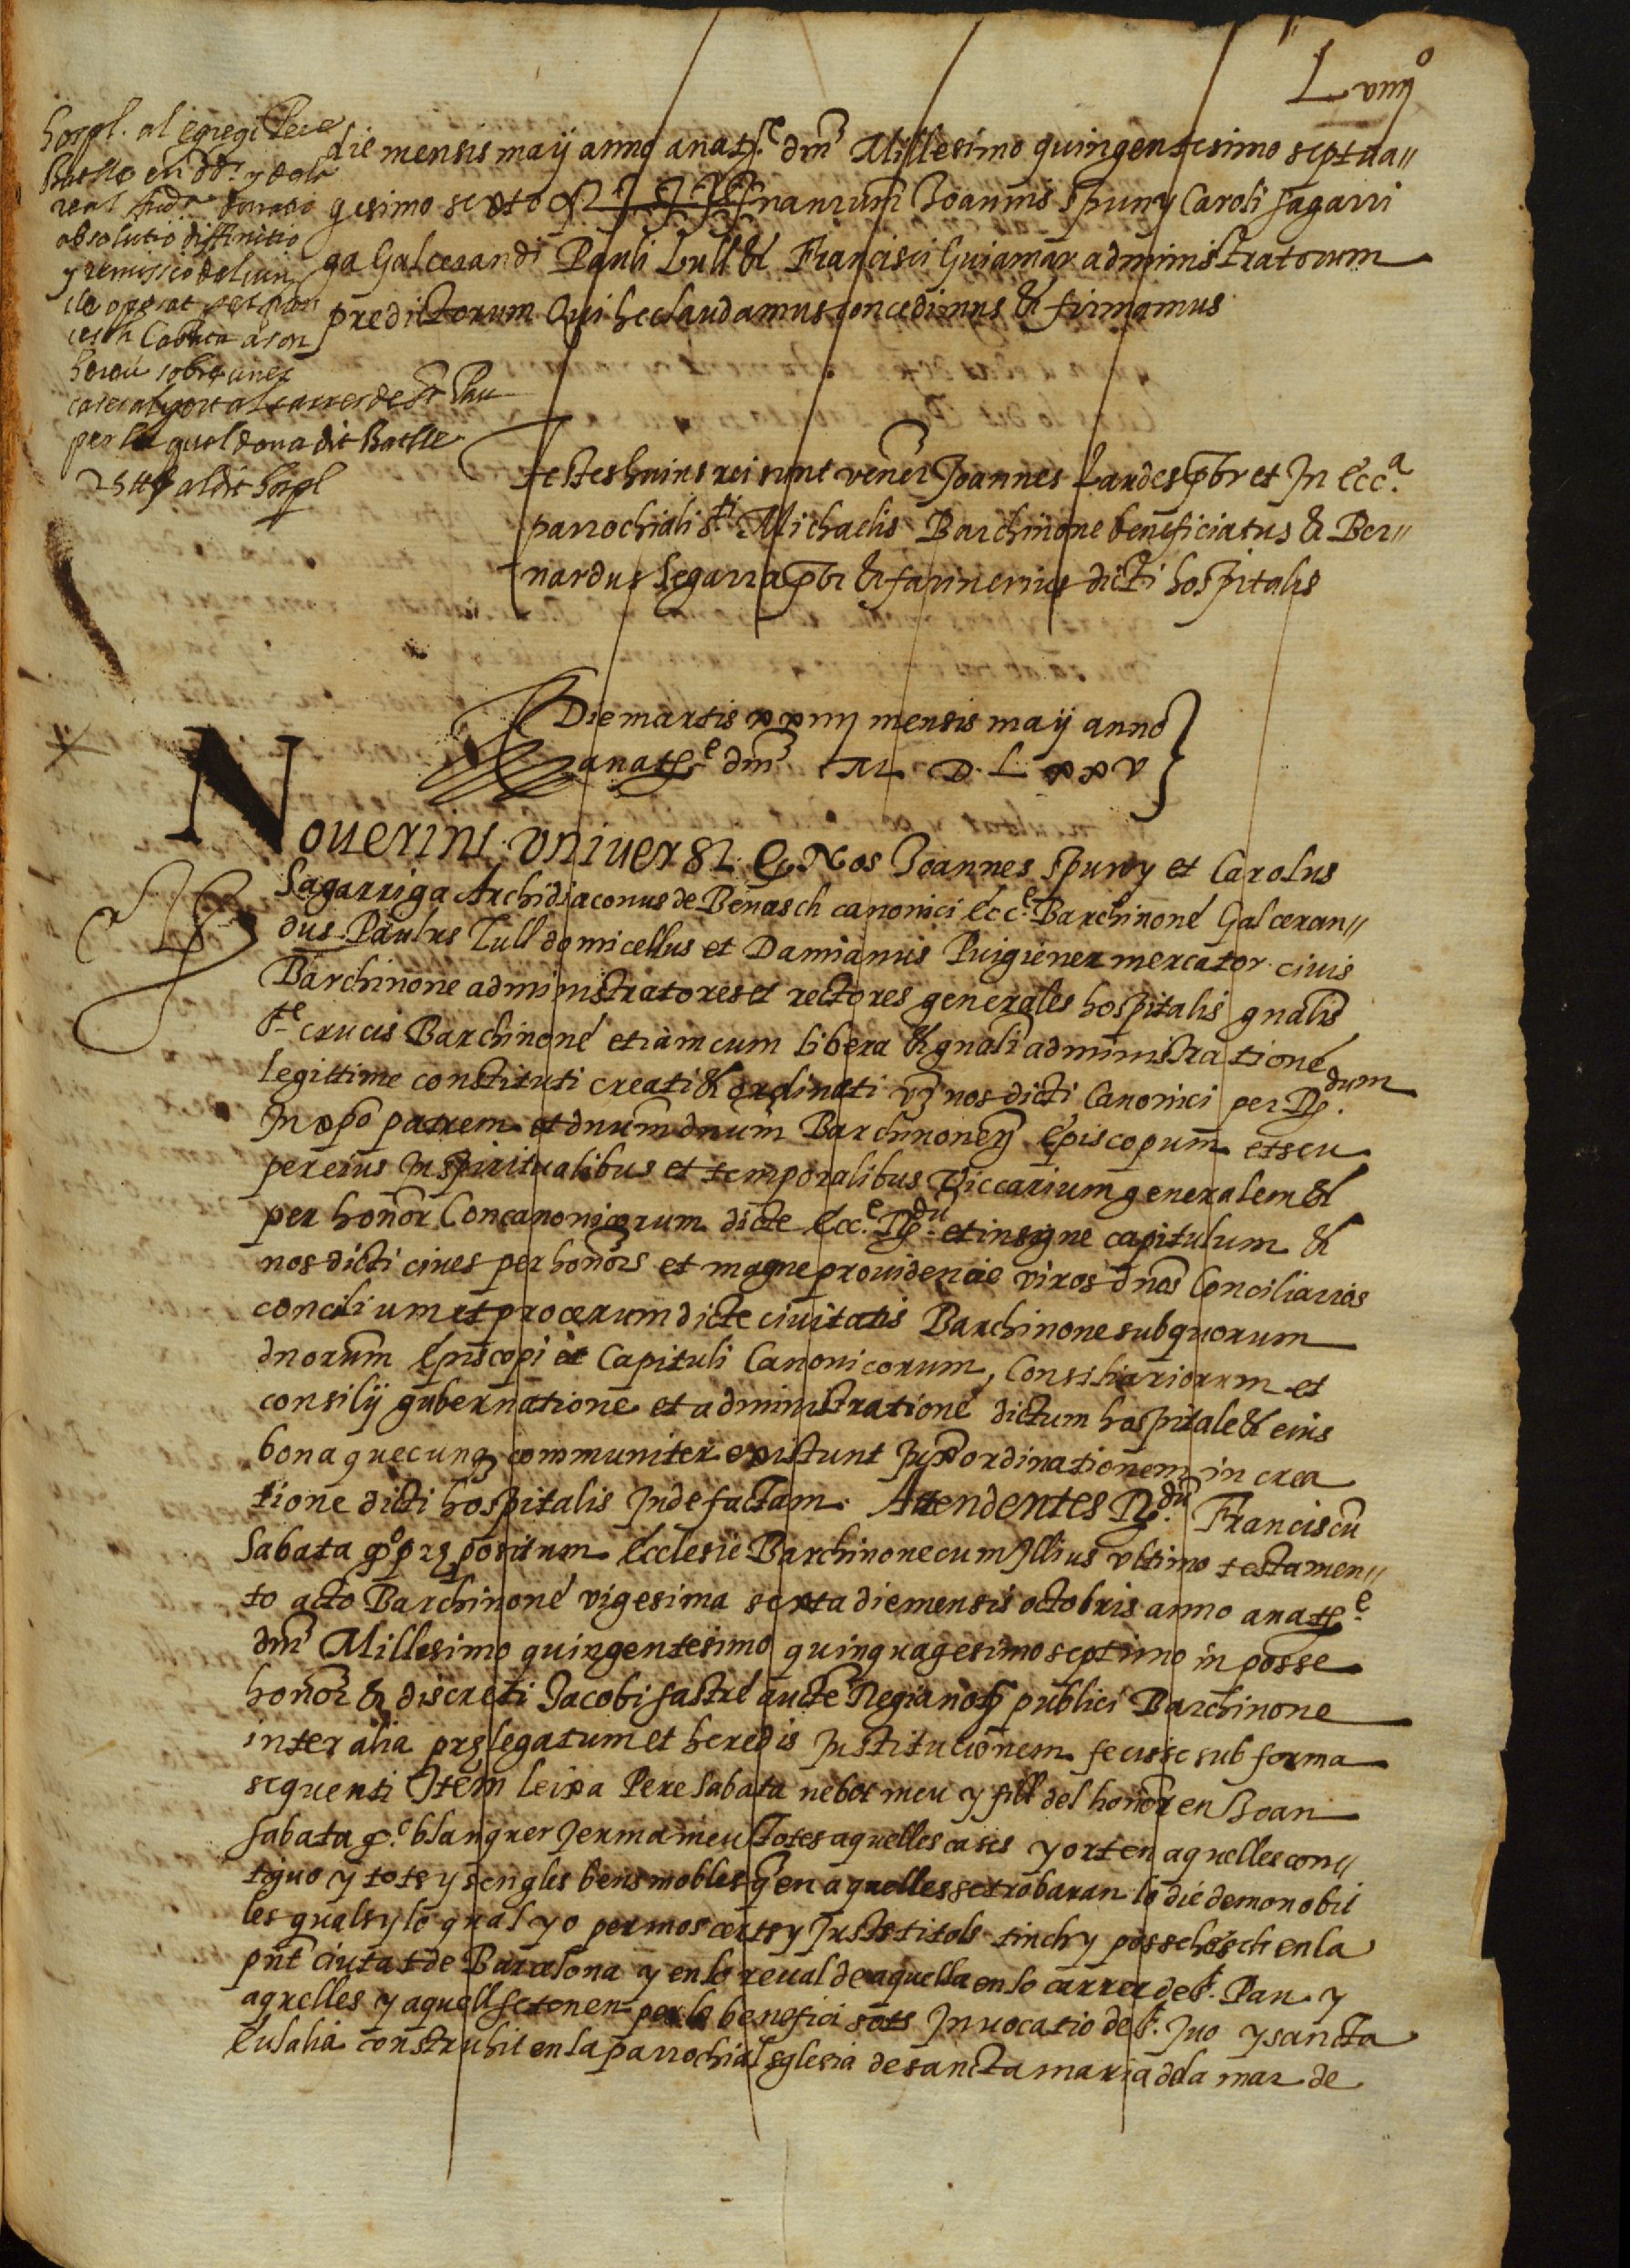 Lviiijº
hospl. al egregi Pere
Batlle en
real
absolutio diffinitio
y remissio del vin
cle apposat per fran
cesch Çabata a son
hereu sobre unes
cases al y ort al carrer de St Pau
per la qual dona dit Batlle
25 ₶ al dit hospl
die mensis maij anno a natte dm̄ Millesimo quingentesimo septua//
gesimo sexto Sig nanrum Joannis Spuny Caroli sagarri
ga Galcerandi Pauli Lull & Francisci Guiamar administratorum
predictorum Qui hec laudamus concedimus & firmamus
Testes huius rei sunt venēr Joannes Landes p̄br et In Ecc.a
parrochiali Sti Michaelis Barchinone beneficiatus & Ber//
nardus Segarra p̄br & farinerius dicti hospitalis
Die martis xxiiij mensis maij anno
a natte dm̄ M. D. L xx v
Noverint universi &c Nos Joannes Spuny et Carolus
Sagarriga Archidiaconus de Benasch canonici Ecc.e Barchinone Galceran//
dus Paulus Lull domicellus et Damianus Puigiener mercator civis
Barchinone administratores et rectores generales hospitalis gn̄alis
Ste crucis Barchinone etiam cum libera & gn̄ali administratione
legittime constituti creati & ordinati vz nos dicti Canonici per R.dum
In xp̄o patrem et dnum dnum Barchinoneñ Episcopum et seu
per eius In spiritualibus et temporalibus Viccarium generalem &
per honōr Concanonicorum dicte Ecc.e R.du et insigne capitulum &
nos dicti cives per honōrs et magne providencie viros dn̄os Conciliarios
concilium et procerum dicte civitatis Barchinone sub quorum
dnorum Episcopi et Capituli Canonicorum, Consiliariorum et
consilij gubernatione et administratione dictum hospitale & eius
bona quecunq communiter existunt Juxa ordinationem in crea
tione dicti hospitalis Inde factam. Attendentes R.du Franciscū
Sabata qº prepositum Ecclesie Barchinone cum Illius ultimo testamen//
to acto Barchinone vigesima sexta die mensis octobris anno a natte
dm̄ Millesimo quingentesimo quinquagesimo septimo in posse
honōr & discreti Jacobi sastre aucte Regia not publici Barchinone
inter alia prelegatum et heredis Institucionem fecisse sub forma
sequenti Item leixa Pere Sabata nebot meu y fill del honōr en Joan
sabata q.º blanquer Jerma meu Totes aquelles cases y ort en aquelles con//
tiguo y tots y sengles bens mobles q̄ en aquelles se trobaran lo die de mon obit
les quals y lo qual yo per mos certs y Justs titols tinch y possehesch en la
pn̄t ciutat de Barcelona y en lo reval de aquella en lo carrer de St. Pau y
aquelles y aquell se tenen per lo benefici sots Invocatio de St. Ivo y sancta
Eulalia construhit en la parrochial sglesia de sancta maria dela mar de